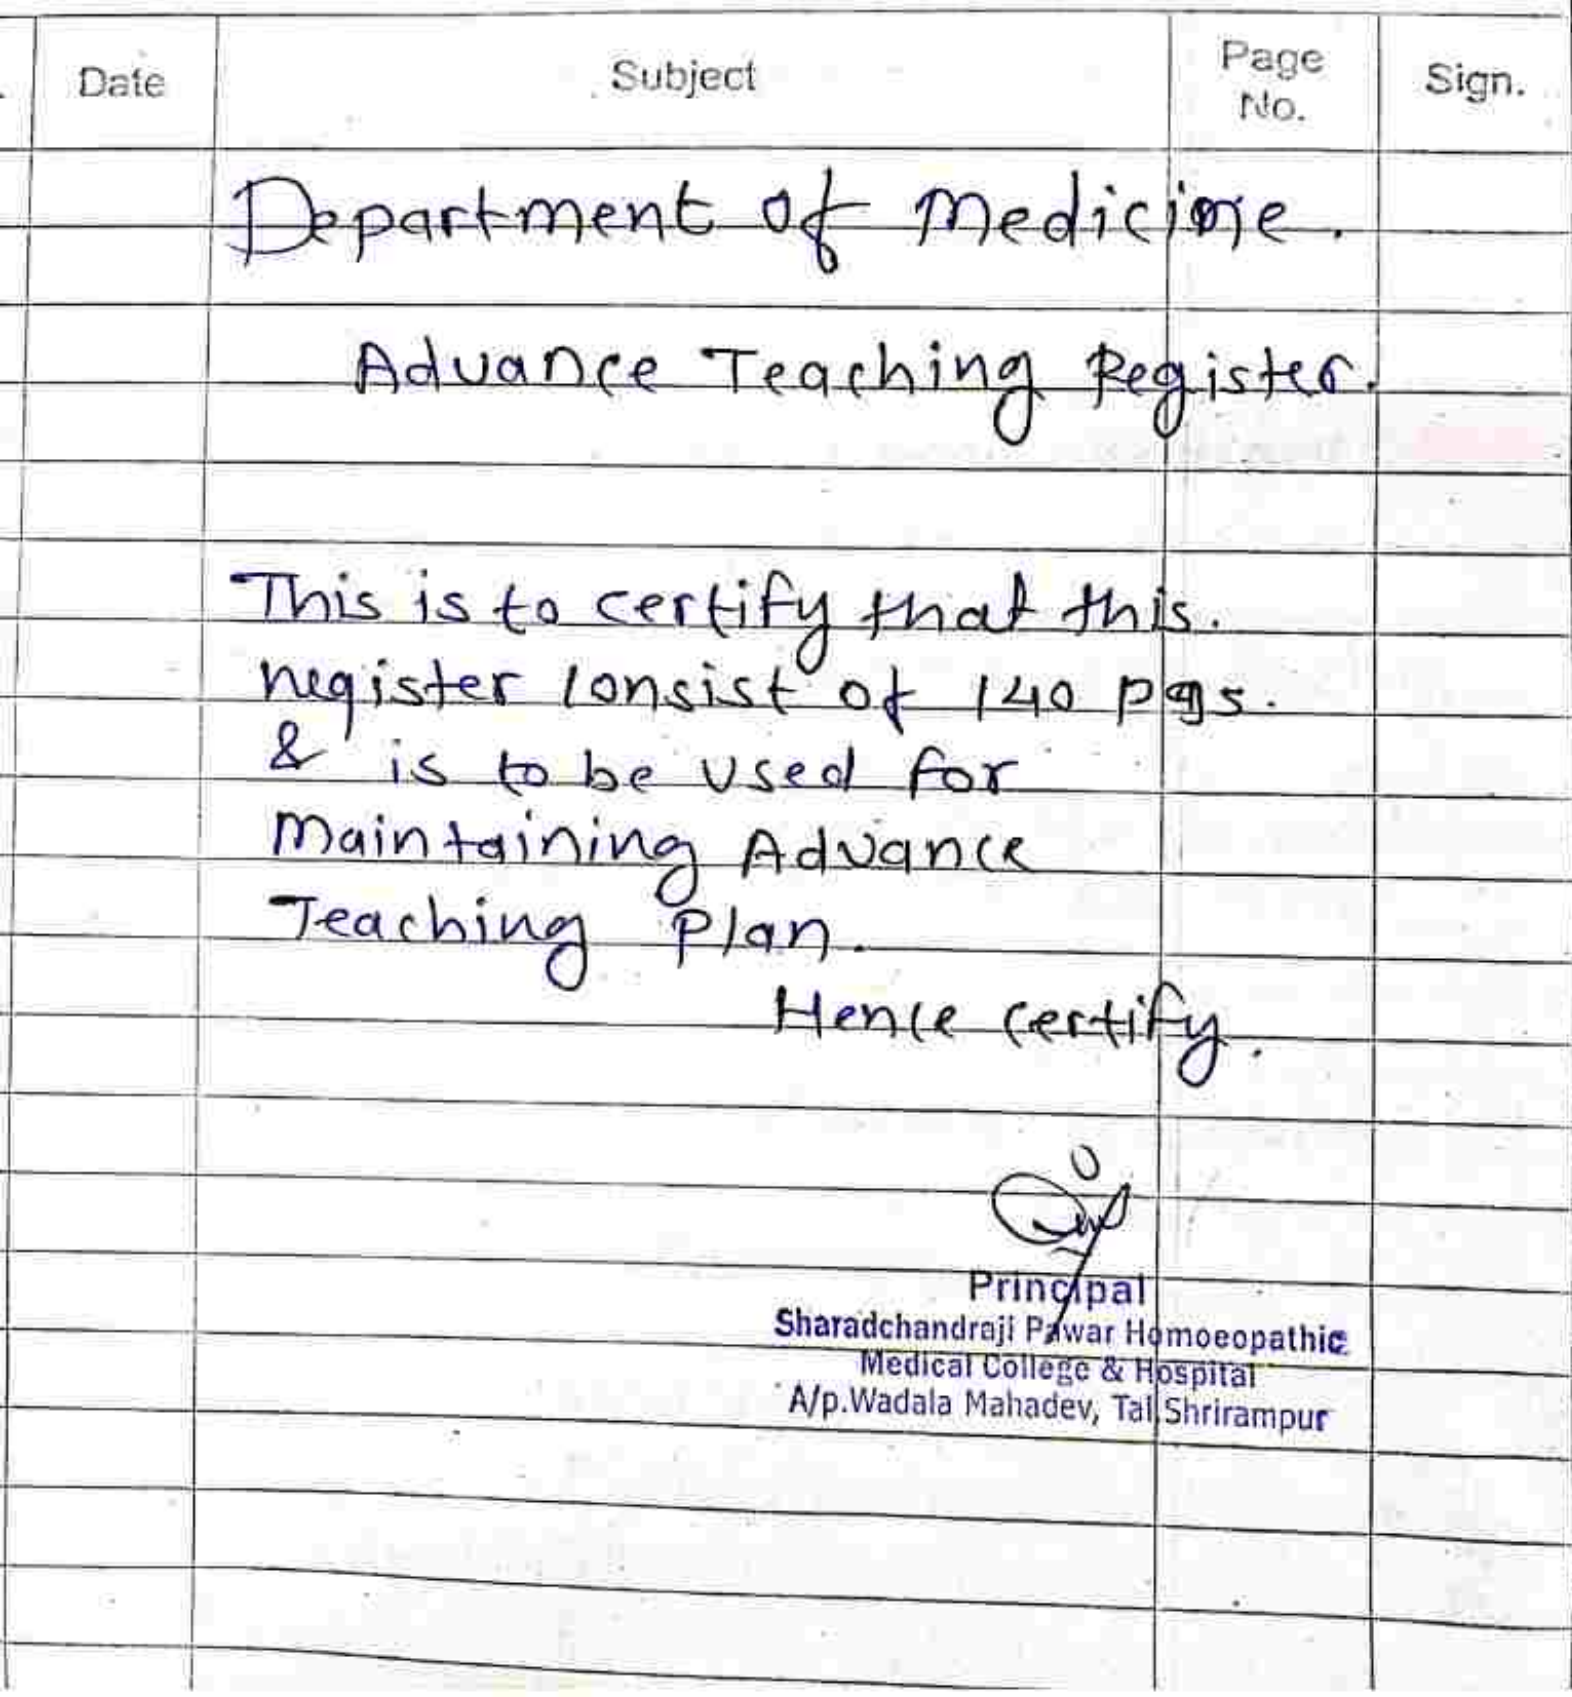 Date Subject Page No. Sign.
Department of Medicine.
Advance Teaching Register.
This is to certify that this.
register consist of 140 pgs.
& is to be used for
Maintaining Advance
Teaching Plan.
Hence certify.
Principal
Sharadchandraji Pawar Homoeopathic
Medical College & Hospital
A/p.Wadala Mahadev, Tal Shrirampur